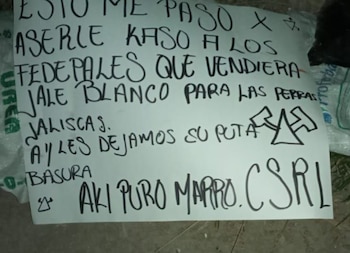 ESTO ME PASO X
ASERLE KASO A LOS
FEDERALES QUE VENDIERA
JALE BLANCO PARA LAS PERRAS
JALISCAS.
AY LES DEJAMOS SU PUTA
BASURA
AKI PURO MARRO. CSRL